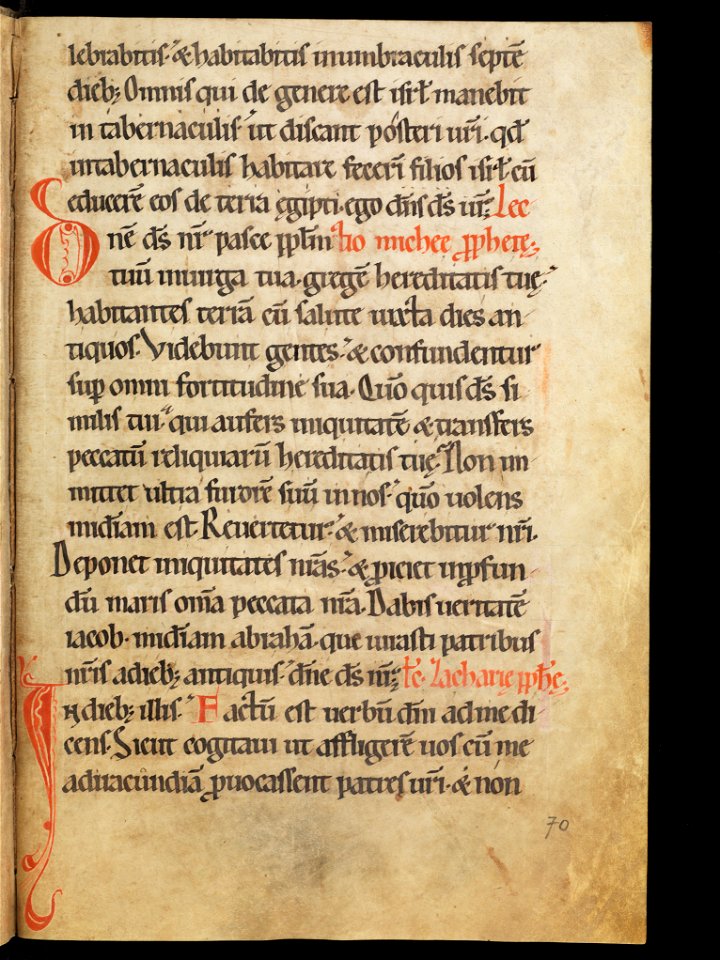 lebrabitis· & habitabitis inumbraculis septē
dieb; Omnis qui de genere est isrł manebit
in tabernaculis· ut discant posteri uri· qđ
intabernaculis habitare fecerī filios isrł cū
educerē eos de terra ęgipti· ego dn̄s ds̄ ur̄; Lec
Dn̄e ds̄ nr̄ pasce ppłm tio michee pphetę;
tuū inuirga tua· gregē hereditatis tuę·
habitantes terrā cū saltu iuxta dies an
tiquos· Videbunt gentes· & confundentur
sup omni fortitudine sua· Quō quis ds̄ si
milis tui· qui aufers iniquitatē & transfers
peccatū reliquiarū hereditatis tuę· Non im
mittet ultra furorē suū innos· quō uolens
mīdiam est· Reuertetur· & miserebitur nr̄i·
Deponet iniquitates nr̄as· & piciet inpfun
dū maris om̄a peccata nr̄a· Dabis ueritatē
iacob· mīdiam abrahā· que iurasti patribus
nr̄is adieb; antiquis· dn̄e ds̄ nr̄; łc̄· Zacharię pph̄ę;
In dieb; illis· Factū est uerbū dn̄i ad me di
cens· Sicut cogitaui ut affligerē uos cū me
adiracundiā puocassent patres ur̄i· & non
70